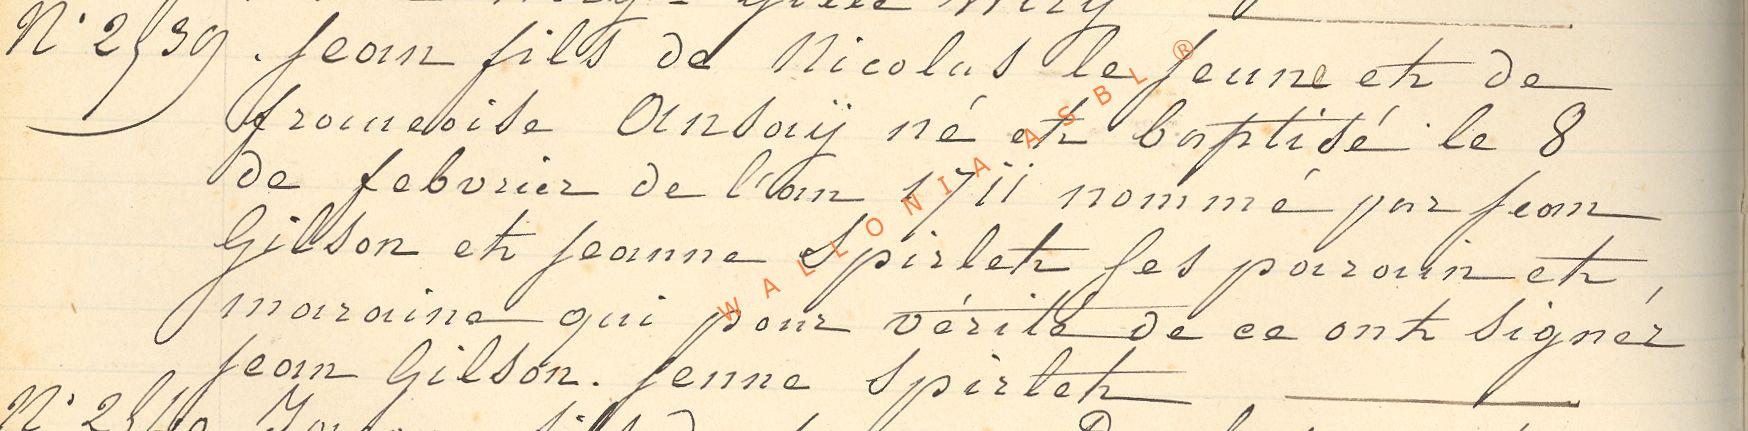 N° 2539. Jean fils de Nicolas le Jeune et de
francoise Ansaÿ né et baptisé le 8
de febvrier de l'an 1711 nommé par Jean
Gilson et Jeanne Spirlet ses parain et
maraine qui pour vérité de ce ont signér
Jean Gilson. Jenne Spirlet
N° 2540
WALLONIA ASBL ®